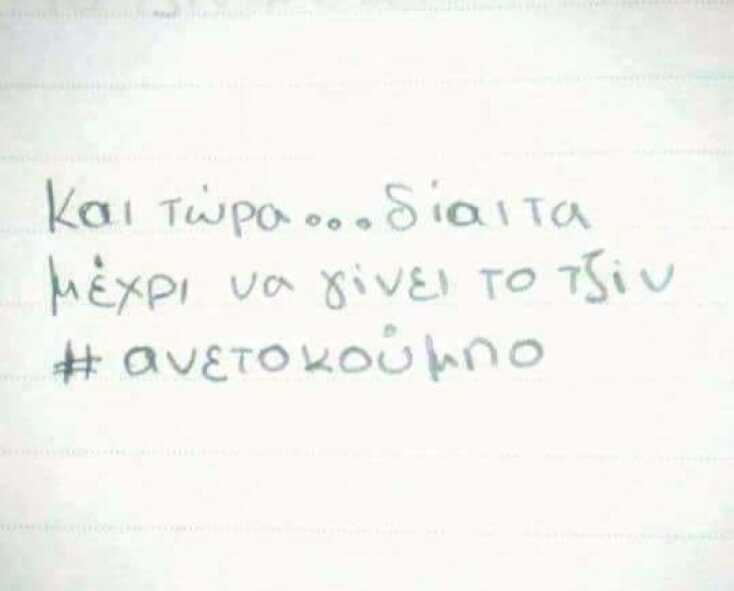 Και τώρα...δίαιτα
μέχρι να γίνει το τζιν
#ανετοκούμπο